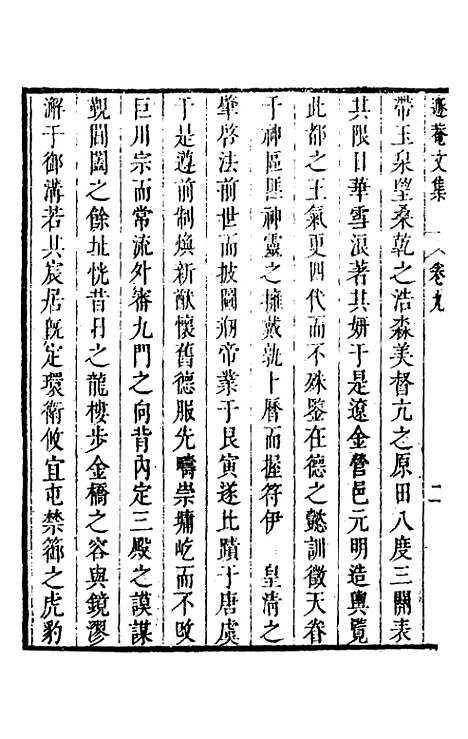 遂菴文集 卷九 二
帶玉泉墾桑乾之浩淼美督亢之原田八度三關表
其限日華雪浪著其妍于是遼金營邑元明造輿覽
此都之王氣更四代而不殊鑒在德之懿訓徵天眷
于神區匪神靈之擁戴孰卜曆而握符伊 皇清之
肇啓法前世而披圖剏帝業于艮寅遂比蹟于唐虞
于是遵前制煥新猷懷舊德服先疇崇墉屹而不改
巨川宗而常流外審九門之向背內定三殿之謨謀
觀閶闔之餘址恍昔日之龍樓步金橋之容與鏡漻
澥于御溝若其宸居旣定環衛攸宜屯禁籞之虎豹